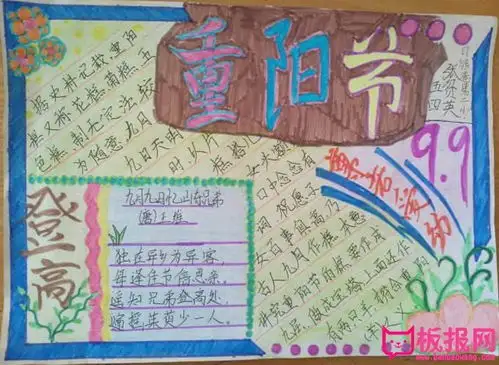 重阳节
据史料记载重阳
糕又称花糕菊糕五
色糕制无定法较
为随意九月
九日天明
时,以片糕搭
女头额
口中念念有
词,祝愿子
女百事俱高,乃
古人九月作糕本意
讲究重阳节的糕要作成
九层,像座宝塔上面还作
有两只羊
9.9
登高
九月九日忆山东兄弟
(唐)王维
独在异乡为异客,
每逢佳节倍思亲。
遥知兄弟登高处,
遍插茱萸少一人。
板报网